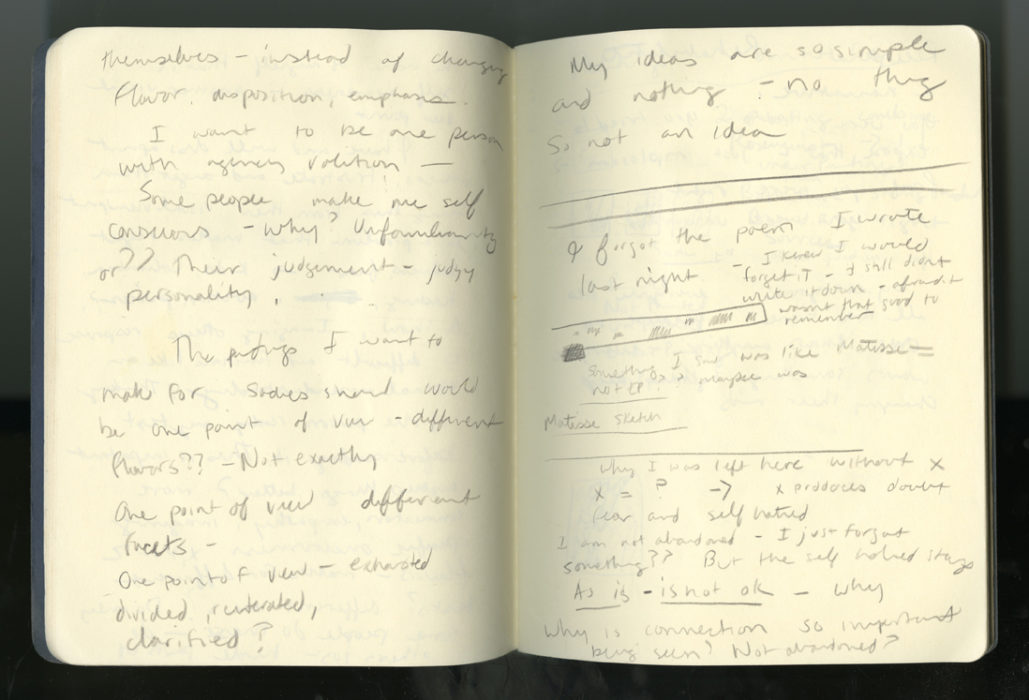 themselves - instead of changing
flavor, disposition, emphasis.
I want to be one person
with agency volition —
Some people make me self
conscious - why? Unfamiliarity
or?? Their judgement - judgy
personality.
The paintings I want to
make for should would
be one point of view - different
flavors?? - Not exactly
One point of view different
facets -
One point of view - exhausted
divided, reiterated,
clarified?
My ideas are so simple
and nothing - no thing
So not an idea
I forgot the poem I wrote
last night - I knew I would
forget it - & still didn't
write it down - afraid it
wasn't that good to
remember
Something I saw was like Matisse =
not EP?? maybe was
Matisse sketch
Why I was left here without x
x = ? -> x produces doubt
fear and self hatred
I am not abandoned - I just forgot
something?? But the self hatred stays
As is - is not ok - why
Why is connection so important
being seen? Not abandoned?